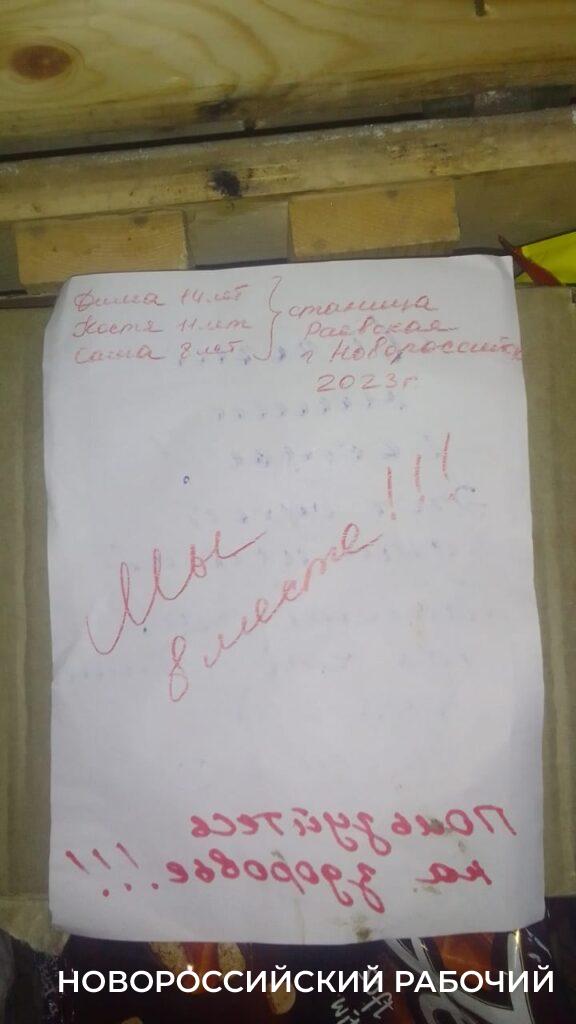 Дима 14 лет
Костя 11 лет
Саша 8 лет
станица
Раевская
г Новороссийск
2023г.
Мы
вместе!!!
Пользуйтесь
на здоровье!!!
НОВОРОССИЙСКИЙ РАБОЧИЙ